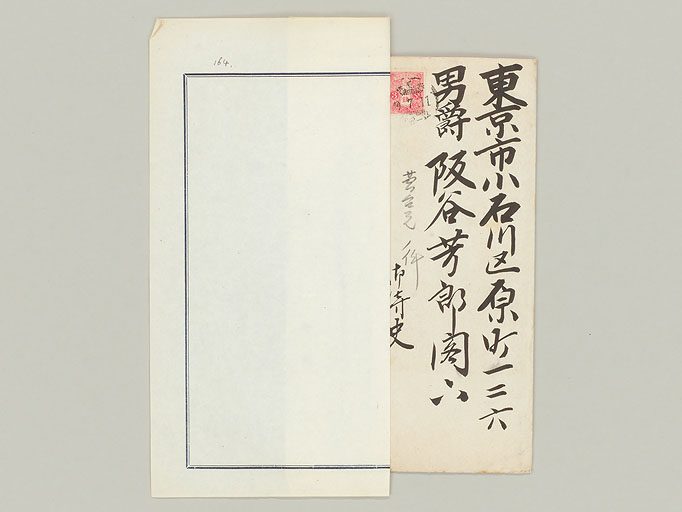 164.
東京市小石川区原町一二六
男爵 阪谷芳郎閣下
御侍史